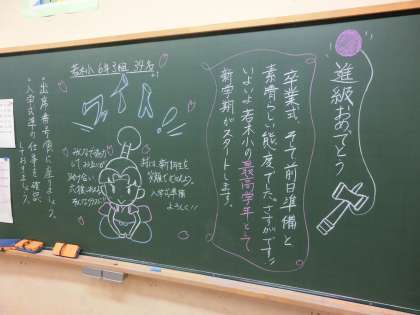 進級おめでとう
卒業式、そして前日準備と
素晴らしい態度でした。さすがです!!
いよいよ若木小の最高学年として
新学期がスタートします。
若木小 6年3組 34名
ファイト!
みんなで協力
して
明日は、新1年生を
笑顔でむかえよう。
入学式準備
よろしく!!
・出席番号順に座りましょう。
・入学式準備の仕事を確認
しておきましょう。